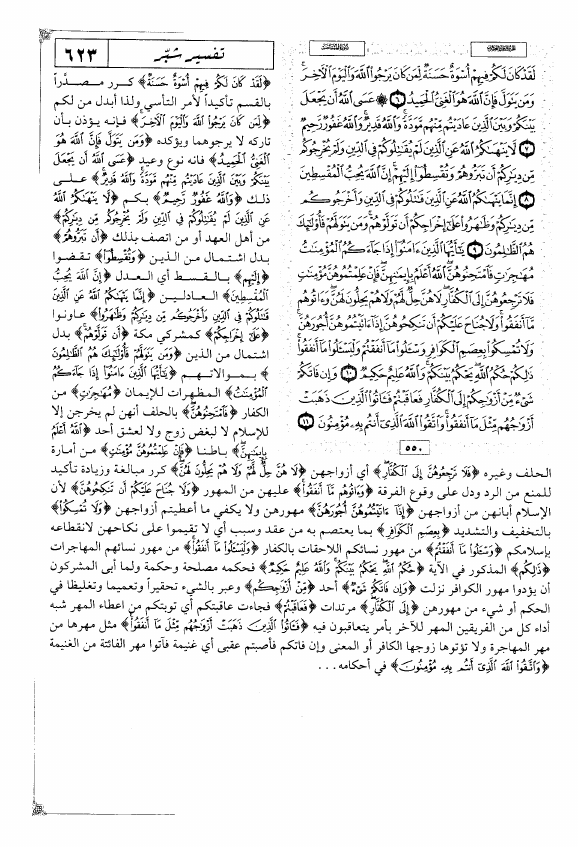 تفسير شبّر
٦٢٣
لَقَدْ كَانَ لَكُمْ فِيهِمْ أُسْوَةٌ حَسَنَةٌ لِمَن كَانَ يَرْجُوا اللَّهَ وَالْيَوْمَ الْآخِرَ
وَمَن يَتَوَلَّ فَإِنَّ اللَّهَ هُوَ الْغَنِيُّ الْحَمِيدُ ٦ ۞ عَسَى اللَّهُ أَن يَجْعَلَ
بَيْنَكُمْ وَبَيْنَ الَّذِينَ عَادَيْتُم مِّنْهُم مَّوَدَّةً وَاللَّهُ قَدِيرٌ وَاللَّهُ غَفُورٌ رَّحِيمٌ
٧ لَّا يَنْهَاكُمُ اللَّهُ عَنِ الَّذِينَ لَمْ يُقَاتِلُوكُمْ فِي الدِّينِ وَلَمْ يُخْرِجُوكُم
مِّن دِيَارِكُمْ أَن تَبَرُّوهُمْ وَتُقْسِطُوا إِلَيْهِمْ إِنَّ اللَّهَ يُحِبُّ الْمُقْسِطِينَ
٨ إِنَّمَا يَنْهَاكُمُ اللَّهُ عَنِ الَّذِينَ قَاتَلُوكُمْ فِي الدِّينِ وَأَخْرَجُوكُم
مِّن دِيَارِكُمْ وَظَاهَرُوا عَلَى إِخْرَاجِكُمْ أَن تَوَلَّوْهُمْ وَمَن يَتَوَلَّهُمْ فَأُولَئِكَ
هُمُ الظَّالِمُونَ ٩ يَا أَيُّهَا الَّذِينَ آمَنُوا إِذَا جَاءَكُمُ الْمُؤْمِنَاتُ
مُهَاجِرَاتٍ فَامْتَحِنُوهُنَّ اللَّهُ أَعْلَمُ بِإِيمَانِهِنَّ فَإِنْ عَلِمْتُمُوهُنَّ مُؤْمِنَاتٍ
فَلَا تَرْجِعُوهُنَّ إِلَى الْكُفَّارِ لَا هُنَّ حِلٌّ لَّهُمْ وَلَا هُمْ يَحِلُّونَ لَهُنَّ وَآتُوهُم
مَّا أَنفَقُوا وَلَا جُنَاحَ عَلَيْكُمْ أَن تَنكِحُوهُنَّ إِذَا آتَيْتُمُوهُنَّ أُجُورَهُنَّ
وَلَا تُمْسِكُوا بِعِصَمِ الْكَوَافِرِ وَسْئَلُوا مَا أَنفَقْتُمْ وَلْيَسْئَلُوا مَا أَنفَقُوا
ذَلِكُمْ حُكْمُ اللَّهِ يَحْكُمُ بَيْنَكُمْ وَاللَّهُ عَلِيمٌ حَكِيمٌ ١٠ وَإِن فَاتَكُمْ
شَيْءٌ مِّنْ أَزْوَاجِكُمْ إِلَى الْكُفَّارِ فَعَاقَبْتُمْ فَآتُوا الَّذِينَ ذَهَبَتْ
أَزْوَاجُهُم مِّثْلَ مَا أَنفَقُوا وَاتَّقُوا اللَّهَ الَّذِي أَنتُم بِهِ مُؤْمِنُونَ ١١
٥٥٠
﴿لَقَدْ كَانَ لَكُمْ فِيهِمْ أُسْوَةٌ حَسَنَةٌ﴾ كرر مصدّراً
بالقسم تأكيداً لأمر التأسي ولذا أبدل من لكم
﴿لِمَن كَانَ يَرْجُوا اللَّهَ وَالْيَوْمَ الْآخِرَ﴾ فإنه يؤذن بأن
تاركه لا يرجوهما ويؤكده ﴿وَمَن يَتَوَلَّ فَإِنَّ اللَّهَ هُوَ
الْغَنِيُّ الْحَمِيدُ﴾ فانه نوع وعيد ﴿عَسَى اللَّهُ أَن يَجْعَلَ
بَيْنَكُمْ وَبَيْنَ الَّذِينَ عَادَيْتُم مِّنْهُم مَّوَدَّةً وَاللَّهُ قَدِيرٌ﴾ على
ذلك ﴿وَاللَّهُ غَفُورٌ رَّحِيمٌ﴾ بكم ﴿لَّا يَنْهَاكُمُ اللَّهُ
عَنِ الَّذِينَ لَمْ يُقَاتِلُوكُمْ فِي الدِّينِ وَلَمْ يُخْرِجُوكُم مِّن دِيَارِكُمْ﴾
من أهل العهد أو من اتصف بذلك ﴿أَن تَبَرُّوهُمْ﴾
بدل اشتمال من الذين ﴿وَتُقْسِطُوا﴾ تفضوا
﴿إِلَيْهِمْ﴾ بالقسط أي العدل ﴿إِنَّ اللَّهَ يُحِبُّ
الْمُقْسِطِينَ﴾ العادلين ﴿إِنَّمَا يَنْهَاكُمُ اللَّهُ عَنِ الَّذِينَ
قَاتَلُوكُمْ فِي الدِّينِ وَأَخْرَجُوكُم مِّن دِيَارِكُمْ وَظَاهَرُوا﴾ عاونوا
﴿عَلَى إِخْرَاجِكُمْ﴾ كمشركي مكة ﴿أَن تَوَلَّوْهُمْ﴾ بدل
اشتمال من الذين ﴿وَمَن يَتَوَلَّهُمْ فَأُولَئِكَ هُمُ الظَّالِمُونَ﴾
بموالاتهم ﴿يَا أَيُّهَا الَّذِينَ آمَنُوا إِذَا جَاءَكُمُ
الْمُؤْمِنَاتُ﴾ المظهرات للإيمان ﴿مُهَاجِرَاتٍ﴾ من
الكفار ﴿فَامْتَحِنُوهُنَّ﴾ بالحلف أنهن لم يخرجن إلا
للإسلام لا لبغض زوج ولا لعشق أحد ﴿اللَّهُ أَعْلَمُ
بِإِيمَانِهِنَّ﴾ باطنا ﴿فَإِنْ عَلِمْتُمُوهُنَّ مُؤْمِنَاتٍ﴾ من أمارة
الحلف وغيره ﴿فَلَا تَرْجِعُوهُنَّ إِلَى الْكُفَّارِ﴾ أي أزواجهن ﴿لَا هُنَّ حِلٌّ لَّهُمْ وَلَا هُمْ يَحِلُّونَ لَهُنَّ﴾ كرر مبالغة وزيادة تأكيد
للمنع من الرد ودل على وقوع الفرقة ﴿وَآتُوهُم مَّا أَنفَقُوا﴾ عليهن من المهور ﴿وَلَا جُنَاحَ عَلَيْكُمْ أَن تَنكِحُوهُنَّ﴾ لأن
الإسلام أبانهن من أزواجهن ﴿إِذَا آتَيْتُمُوهُنَّ أُجُورَهُنَّ﴾ مهورهن ولا يكفي ما أعطيتم أزواجهن ﴿وَلَا تُمْسِكُوا﴾
بالتخفيف والتشديد ﴿بِعِصَمِ الْكَوَافِرِ﴾ بما يعتصم به من عقد وسبب أي لا تقيموا على نكاحهن لانقطاعه
بإسلامكم ﴿وَسْئَلُوا مَا أَنفَقْتُمْ﴾ من مهور نسائكم اللاحقات بالكفار ﴿وَلْيَسْئَلُوا مَا أَنفَقُوا﴾ من مهور نسائهم المهاجرات
﴿ذَلِكُمْ﴾ المذكور في الآية ﴿حُكْمُ اللَّهِ يَحْكُمُ بَيْنَكُمْ وَاللَّهُ عَلِيمٌ حَكِيمٌ﴾ فحكمه مصلحة وحكمة ولما أبى المشركون
أن يؤدوا مهور الكوافر نزلت ﴿وَإِن فَاتَكُمْ شَيْءٌ﴾ أحد ﴿مِّنْ أَزْوَاجِكُمْ﴾ وعبر بالشيء تحقيراً وتعميما وتغليظا في
الحكم أو شيء من مهورهن ﴿إِلَى الْكُفَّارِ﴾ مرتدات ﴿فَعَاقَبْتُمْ﴾ فجاءت عاقبتكم أي توبتكم من اعطاء المهر شبه
أداء كل من الفريقين المهر للآخر بأمر يتعاقبون فيه ﴿فَآتُوا الَّذِينَ ذَهَبَتْ أَزْوَاجُهُم مِّثْلَ مَا أَنفَقُوا﴾ مثل مهرها من
مهر المهاجرة ولا تؤتوها زوجها الكافر أو المعنى وإن فاتكم فأصبتم عقبى أي غنيمة فآتوا مهر الفائتة من الغنيمة
﴿وَاتَّقُوا اللَّهَ الَّذِي أَنتُم بِهِ مُؤْمِنُونَ﴾ في أحكامه...